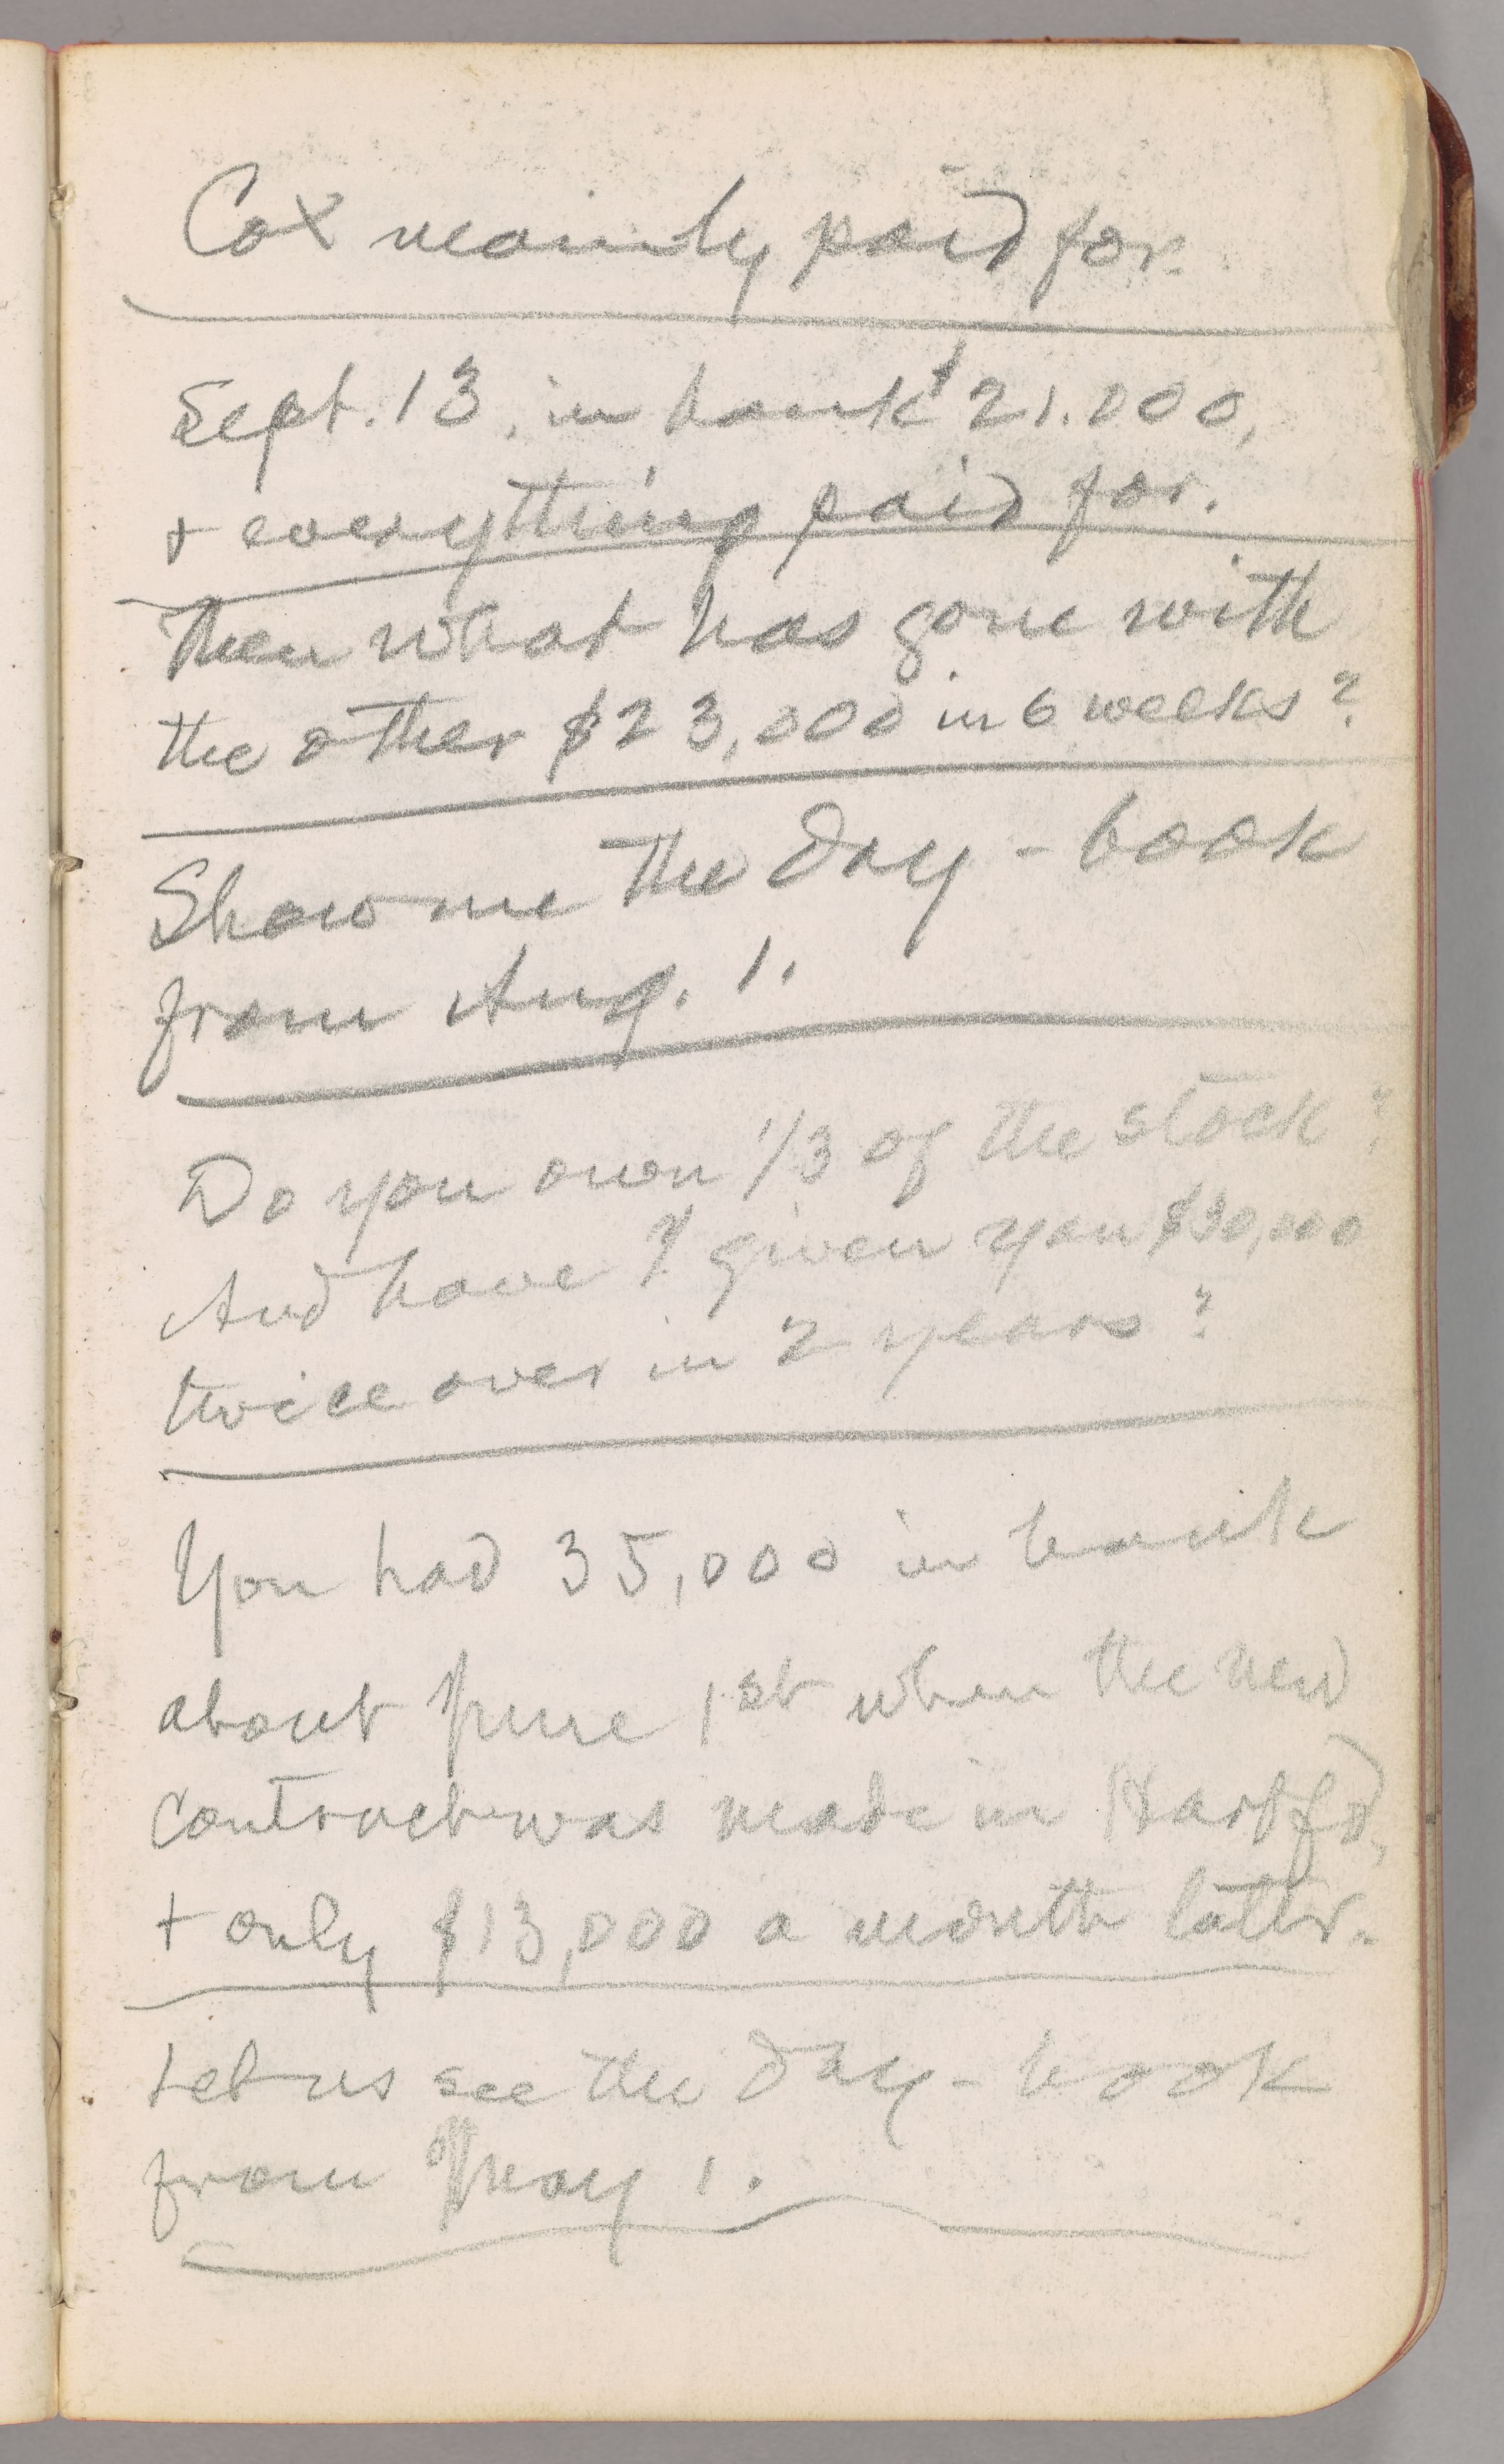 Cox mainly paid for.
Sept. 13, in bank $21.000,
+ everything paid for.
Then what has gone with
the other $23,000 in 6 weeks?
Show me the day-book
from Aug. 1.
Do you own 1/3 of the stock?
And have I given you $30,000
twice over in 2 years?
You had 35,000 in bank
about June 1st when the new
contract was made in Hartfd,
+ only $13,000 a month later.
Let us see the day-book
from May 1.